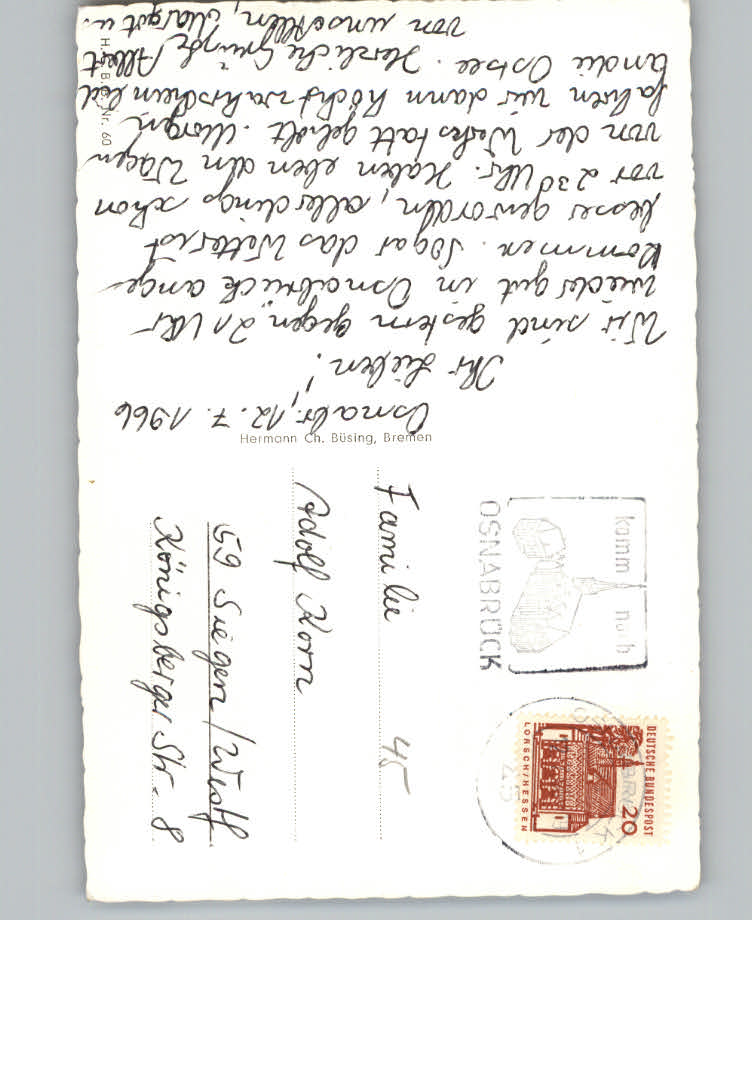 Osnabr., 12. 7. 1966
Ihr Lieben!
Wir sind gestern gegen 21 Uhr
wieder gut in Osnabrück ange-
kommen. Sogar das Wetter ist
besser geworden, allerdings schon
vor 230 Uhr. Haben eben den Wagen
von der Werkstatt geholt. Morgen
fahren wir dann höchstwahrscheinlich
an die Ostsee. Herzliche Grüße
von uns allen, Margot u. Albert
H. B. Nr. 60
Hermann Ch. Büsing, Bremen
komm nach
OSNABRÜCK
DEUTSCHE BUNDESPOST
20
LORSCH/HESSEN
Familie
Adolf Korn
59 Siegen/Westf
Königsberger Str. 8
45